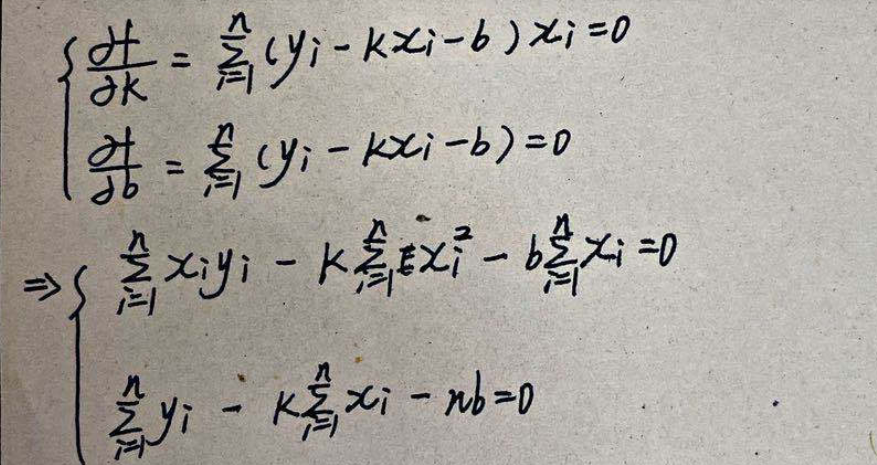 { ∂f/∂k = ∑_{i=1}^{n} (y_i - kx_i - b) x_i = 0
∂f/∂b = ∑_{i=1}^{n} (y_i - kx_i - b) = 0
⇒ { ∑_{i=1}^{n} x_i y_i - k ∑_{i=1}^{n} x_i^2 - b ∑_{i=1}^{n} x_i = 0
∑_{i=1}^{n} y_i - k ∑_{i=1}^{n} x_i - nb = 0